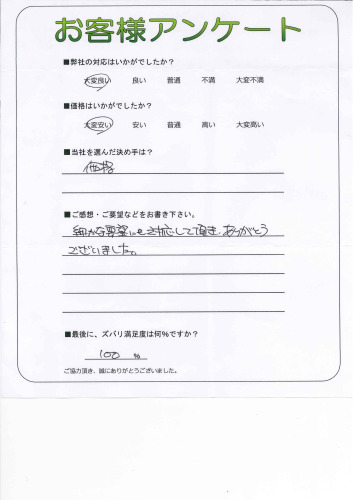 お客様アンケート
■弊社の対応はいかがでしたか？
大変良い 良い 普通 不満 大変不満
■価格はいかがでしたか？
大変安い 安い 普通 高い 大変高い
■当社を選んだ決め手は？
価格
■ご感想・ご要望などをお書き下さい。
細かな要望にも対応して頂き、ありがとう
ございました。
■最後に、ズバリ満足度は何％ですか？
100 ％
ご協力頂き、誠にありがとうございました。